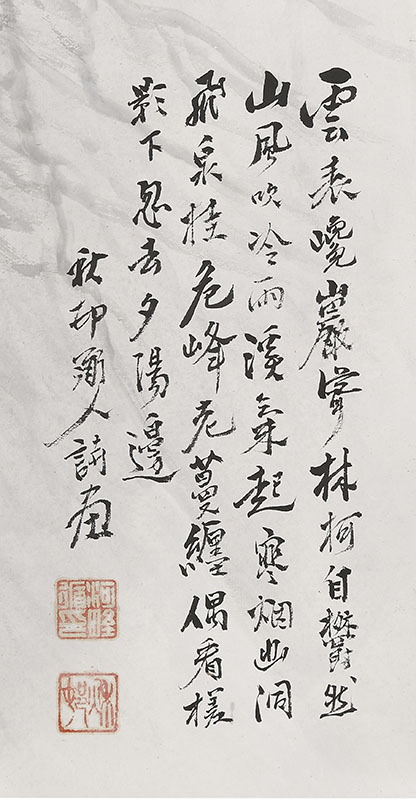 雲表巉巖聳林柯自欝然
山風吹冷雨溪氣起寒烟幽洞
飛泉挂危峰老蔓纏偶看樵
影下忽去夕陽邊
秋邨人詩畫